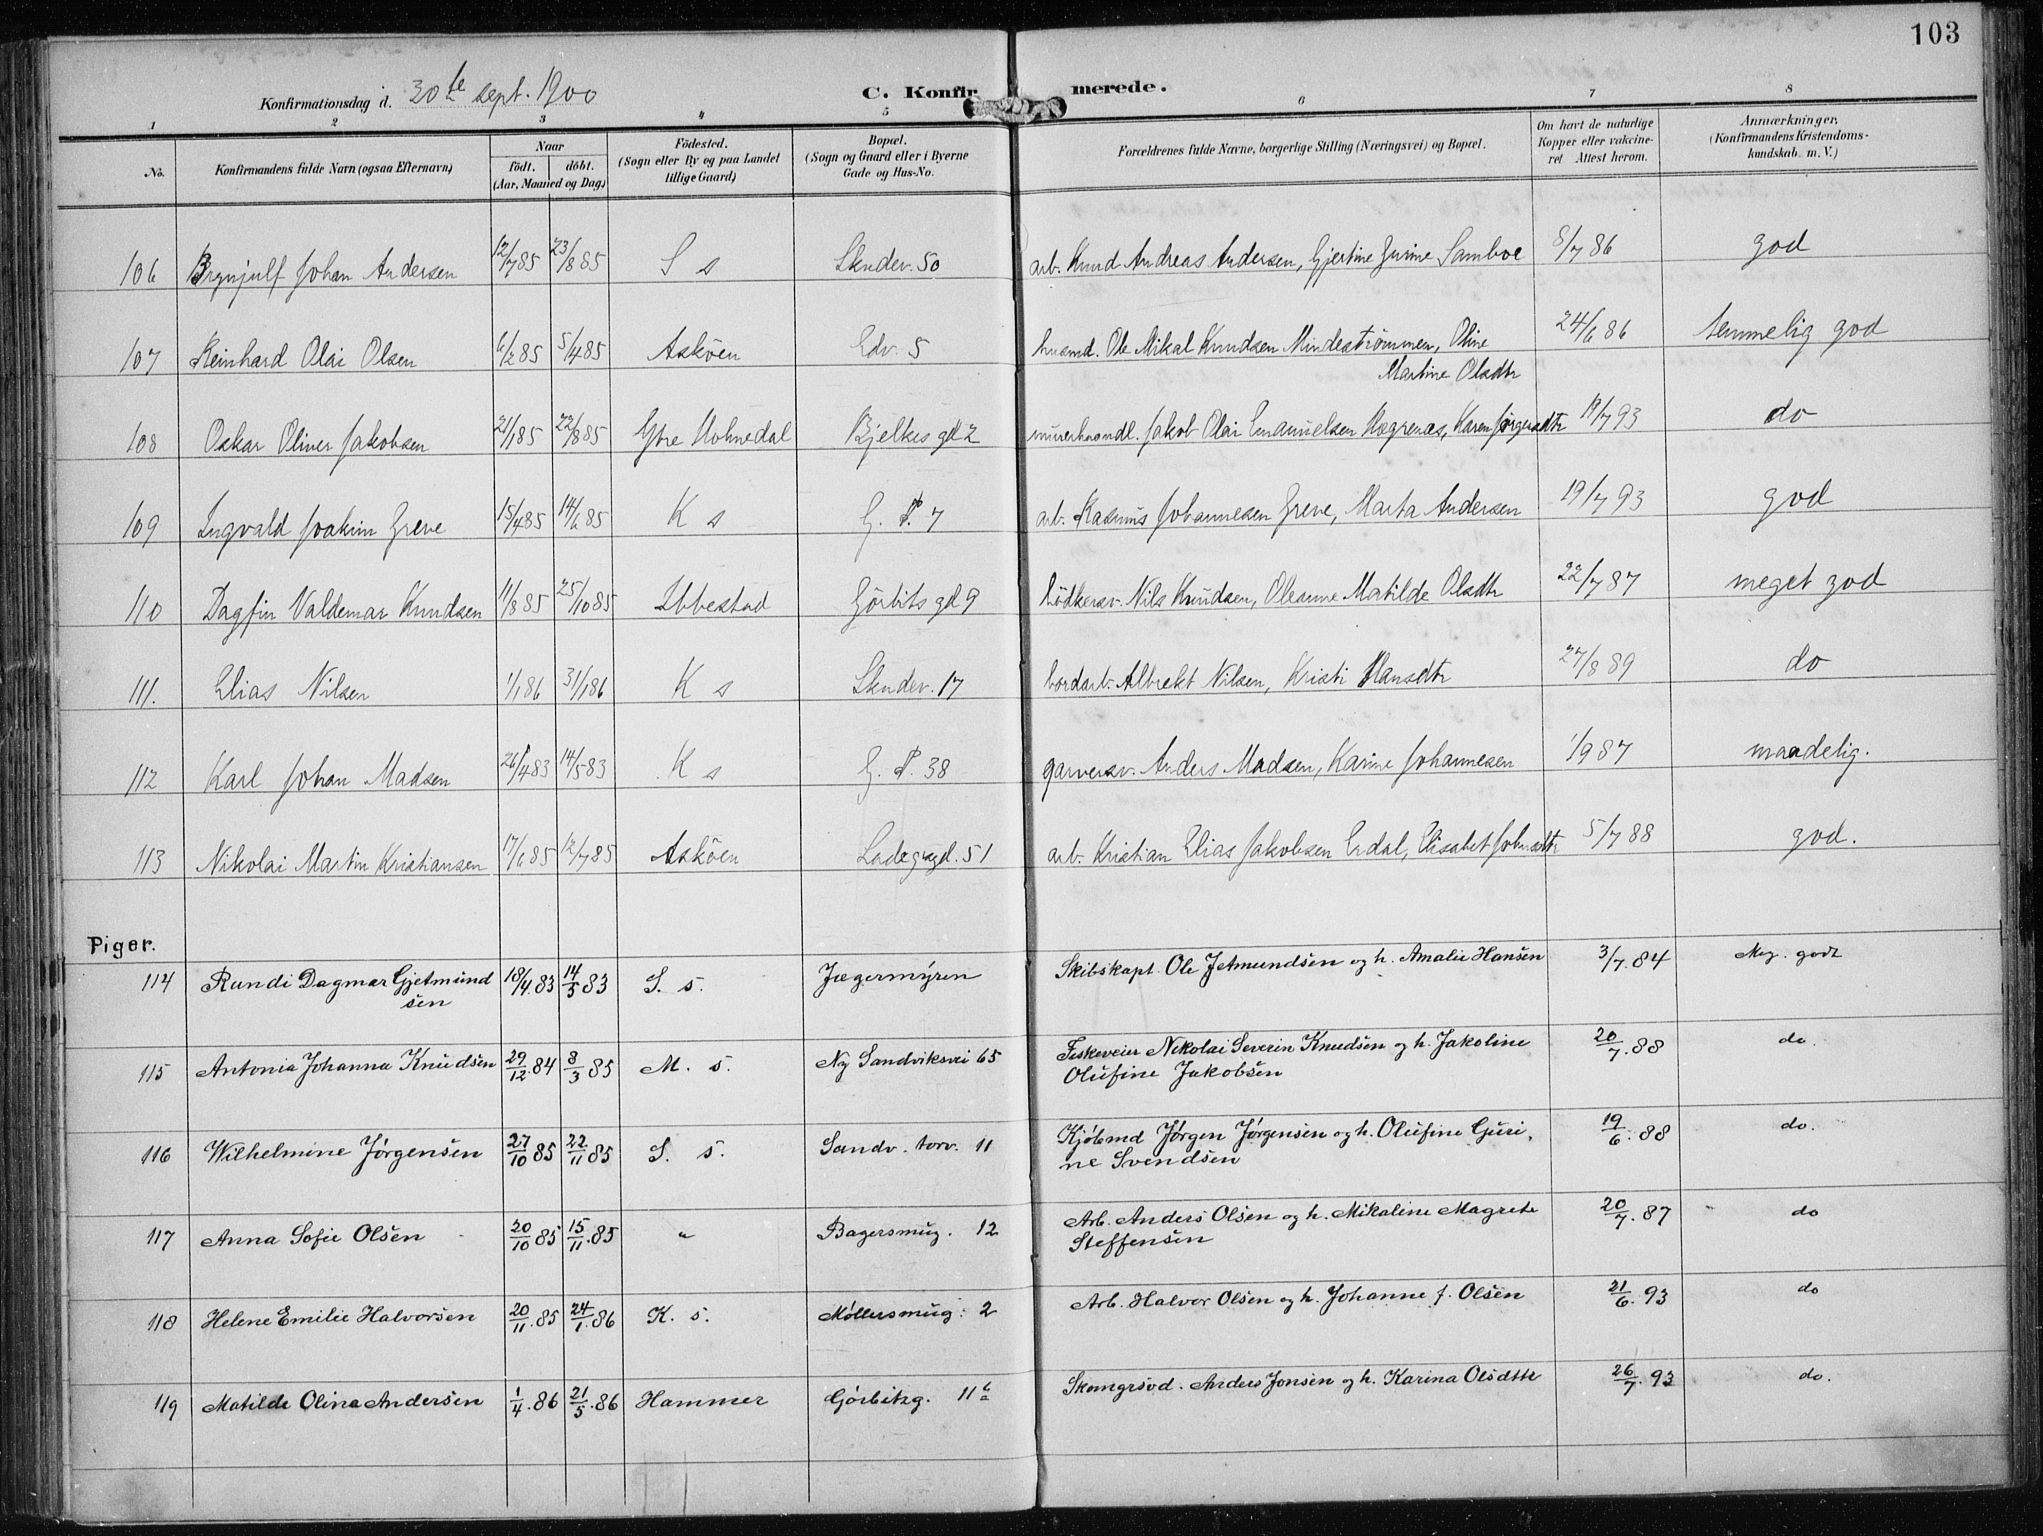 103
Konfirmationsdag d. 30te sept. 1900
C. Konfirmerede.
1 2 3 4 5 6 7 8
No. Konfirmandens fulde Navn (ogsaa Efternavn) Naar födt. döbt. (Aar, Maaned og Dag) Födested. (Sogn eller By og paa Landet tillige Gaard) Bopæl. (Sogn og Gaard eller i Byerne Gade og Hus-No. Forældrenes fulde Navne, borgerlige Stilling (Næringsvei) og Bopæl. Om havt de naturlige Kopper eller vakcineret Attest herom. Anmærkninger. (Konfirmandens Kristendomskundskab m. V.)
106 Brynjulf Johan Andersen 12/7 85 23/8 85 S s Skudev. 50 arb. Knud Andreas Andersen, Gjertine Gurine Samboe 8/7 86 god
107 Reinhard Olai Olsen 6/2 85 5/4 85 Asköen Edv. 5 husmd. Ole Mikal Knudsen Mindeströmmen, Oline
Martine Olsdtr 24/6 86 temmelig god
108 Oskar Oliver Jakobsen 21/1 85 22/8 85 Ytre Holmedal Bjelkes gd 2 murerhaandl. Jakob Olai Emanuelsen Høgrenæs, Karen Jørgensdtr 19/7 93 do
109 Ingvald Joakim Greve 15/4 85 14/6 85 K s G. P. 7 arb. Rasmus Johannesen Greve, Marta Andersen 19/7 93 god
110 Dagfin Valdemar Knudsen 11/8 85 25/10 85 Ibbestad Görbits gd 9 bödkersv. Nils Knudsen, Oleanne Matilde Olsdtr 22/7 87 meget god
111. Elias Nilsen 1/1 86 31/1 86 K s Skudev. 17 bordarb. Albrekt Nilsen, Kristi Hansdtr 27/8 89 do
112 Karl Johan Madsen 26/4 83 14/5 83 K s G. P. 38 garversv. Anders Madsen, Karine Johannesen 1/9 87 maadelig.
113 Nikolai Martin Kristiansen 17/6 85 12/7 85 Asköen Ladegrgd. 51 arb. Kristian Elias Jakobsen Erdal, Elisabet Johnsdtr 5/7 88 god.
Piger.
114 Rundi Dagmar Gjetmund
sen 18/4 83 14/5 83 S. s. Jægermyren Skibskapt. Ole Jetmundsen og h. Amalie Hansen 3/7. 84 Meg. godt
115 Antonia Johanna Knudsen 29/12. 84 8/3 85 M. s. Ny Sandviksvei 65 Fiskeveier Nikolai Severin Knudsen og h. Jakoline
Olufine Jakobsen 20/7. 88 do.
116 Wilhelmine Jørgensen 27/10 85 22/11 85 S. s. Sandv. torv. 11 Kjøbmd Jørgen Jørgensen og h. Olufine Guri-
ne Svendsen 19/6. 88 do.
117 Anna Sofie Olsen 20/10 85 15/11. 85 " Bagersmug. 12 Arb. Anders Olsen og h. Mikaline Magrete
Steffensen 20/7. 87 do
118 Helene Emilie Halvorsen 20/11. 85 24/1. 86 K. s. Møllersmug: 2 Arb. Halvor Olsen og h. Johanne f. Olsen 21/6. 93 do
119 Matilde Olina Andersen 1/4. 86 21/5. 86 Hammer Gørbitzg. 11 Anders Jonsen og h. Karina Olsdttr 26/7. 93 do.